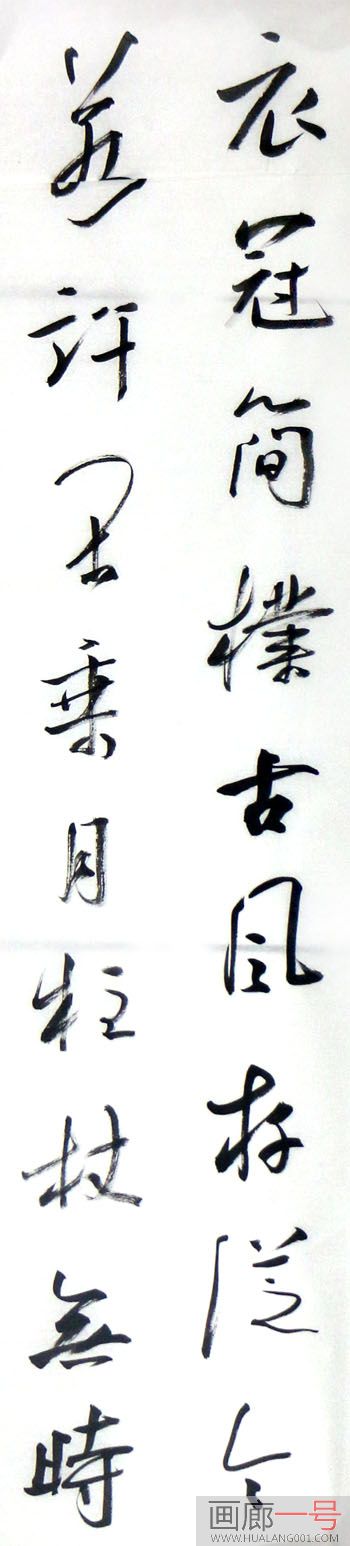 衣冠簡樸古風存從今
若許閑乘月柱杖無時
画廊一号
WWW.HUALANG001.COM